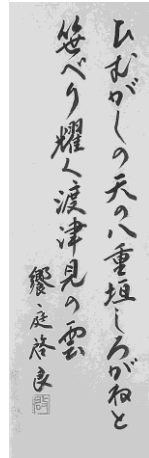 ひむがしの天の八重垣しろがねと
笹べり耀く渡津見の雲
饗庭啓良